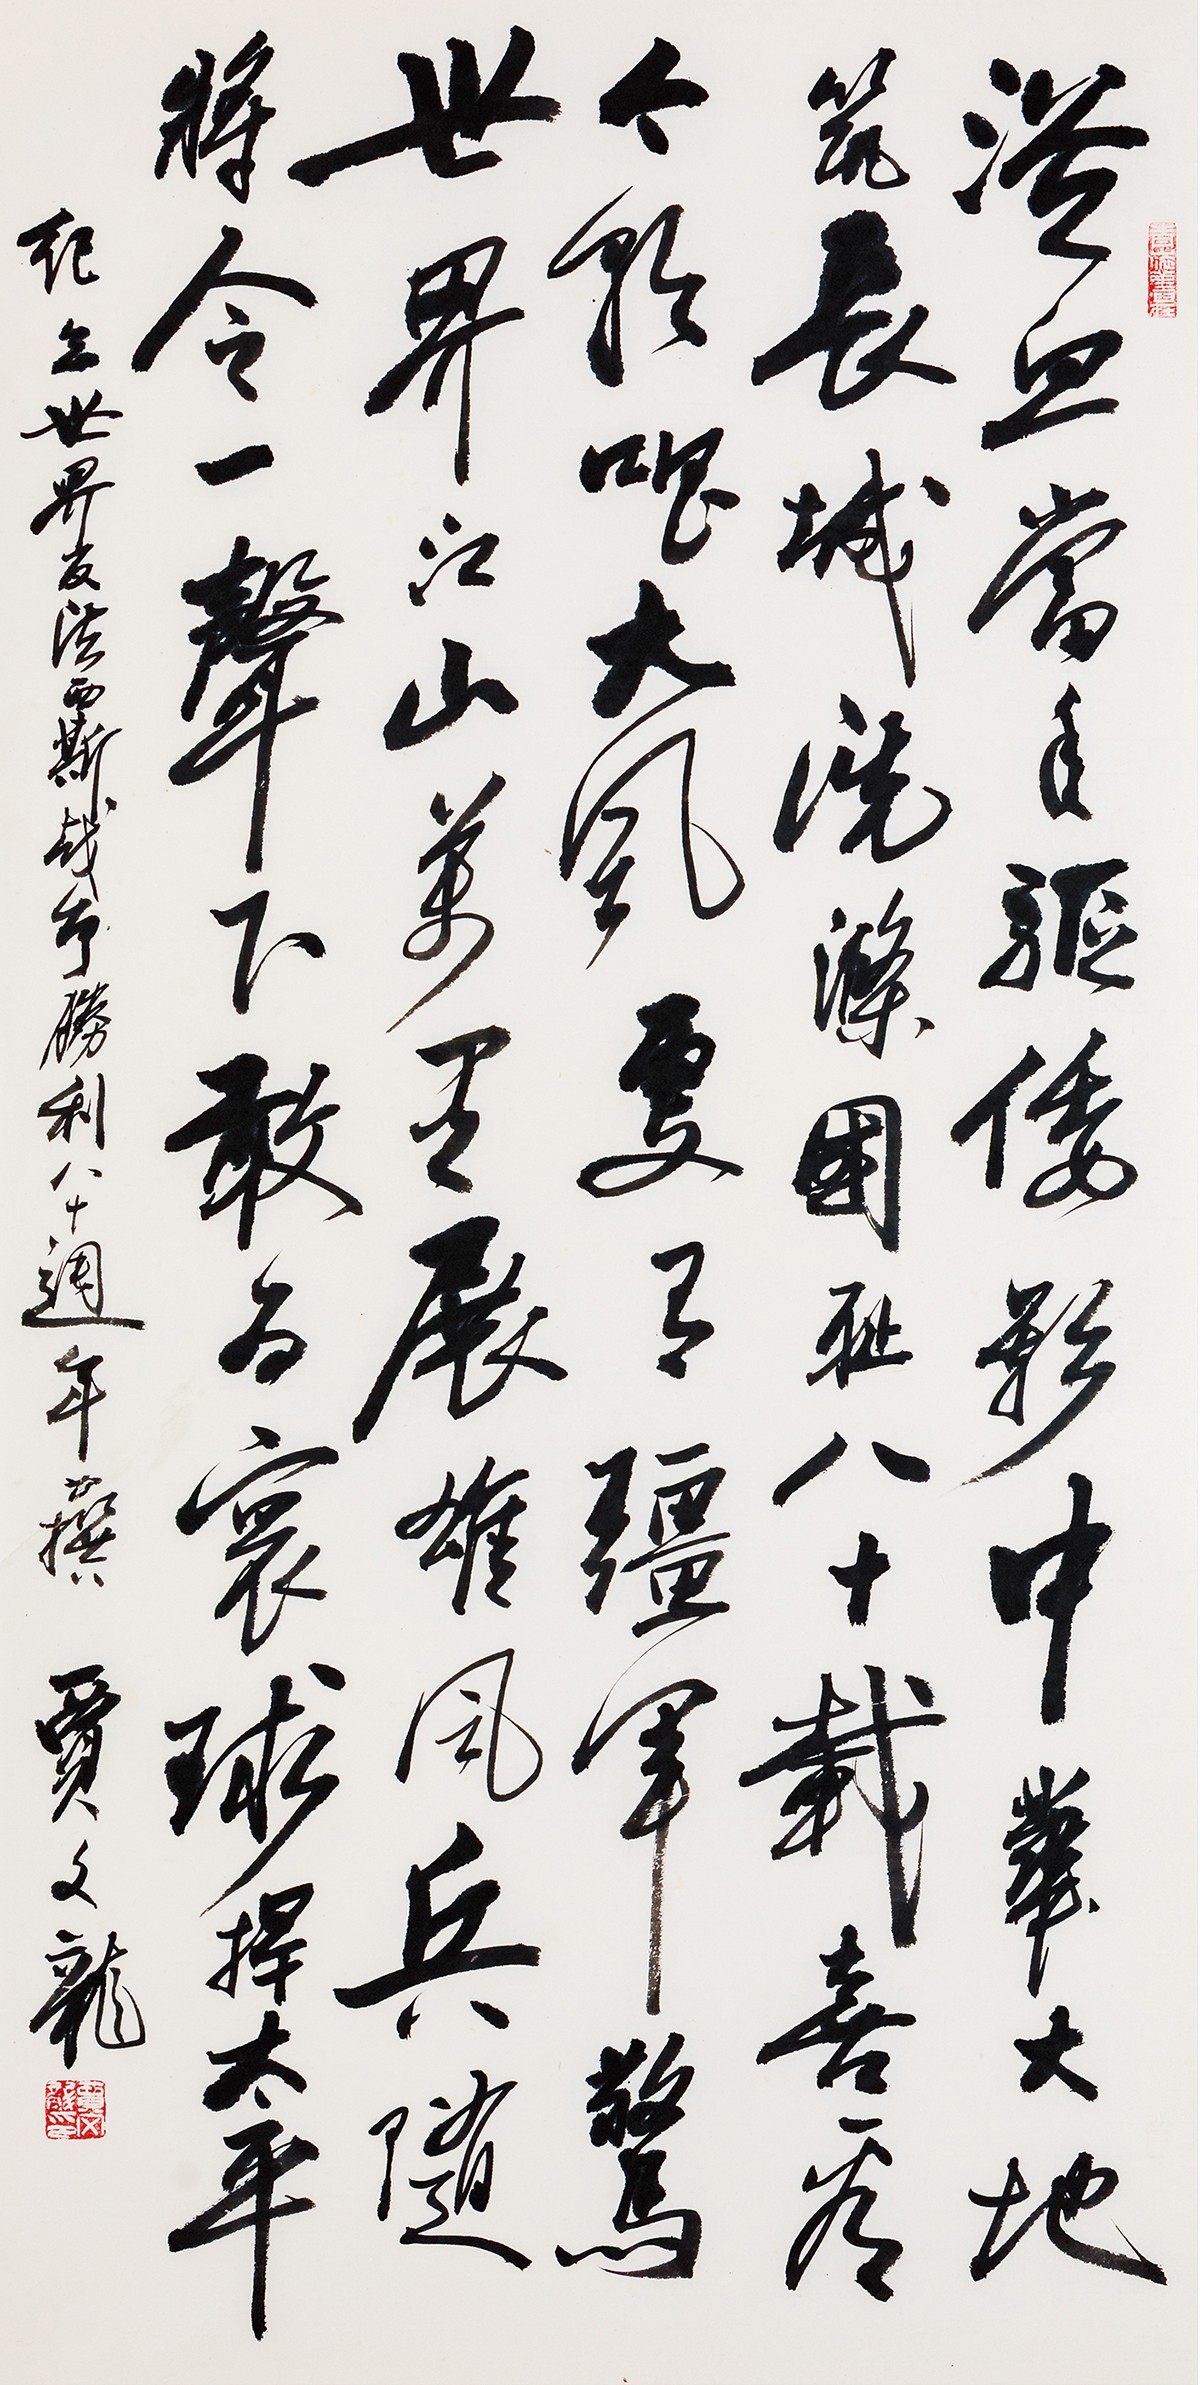 浴血當年驅倭影中華大地
筑長城洗滌國恥八十載喜看
今朝唱大風更有彊軍驚
世界江山萬里展雄風兵隨
將令一聲下敢為寰球捍太平
紀念世界反法西斯戰爭勝利八十週年撰 賈文龍